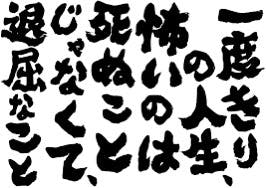 一度きり
の人生、
怖いのは
死ぬこと
じゃなくて、
退屈なこと